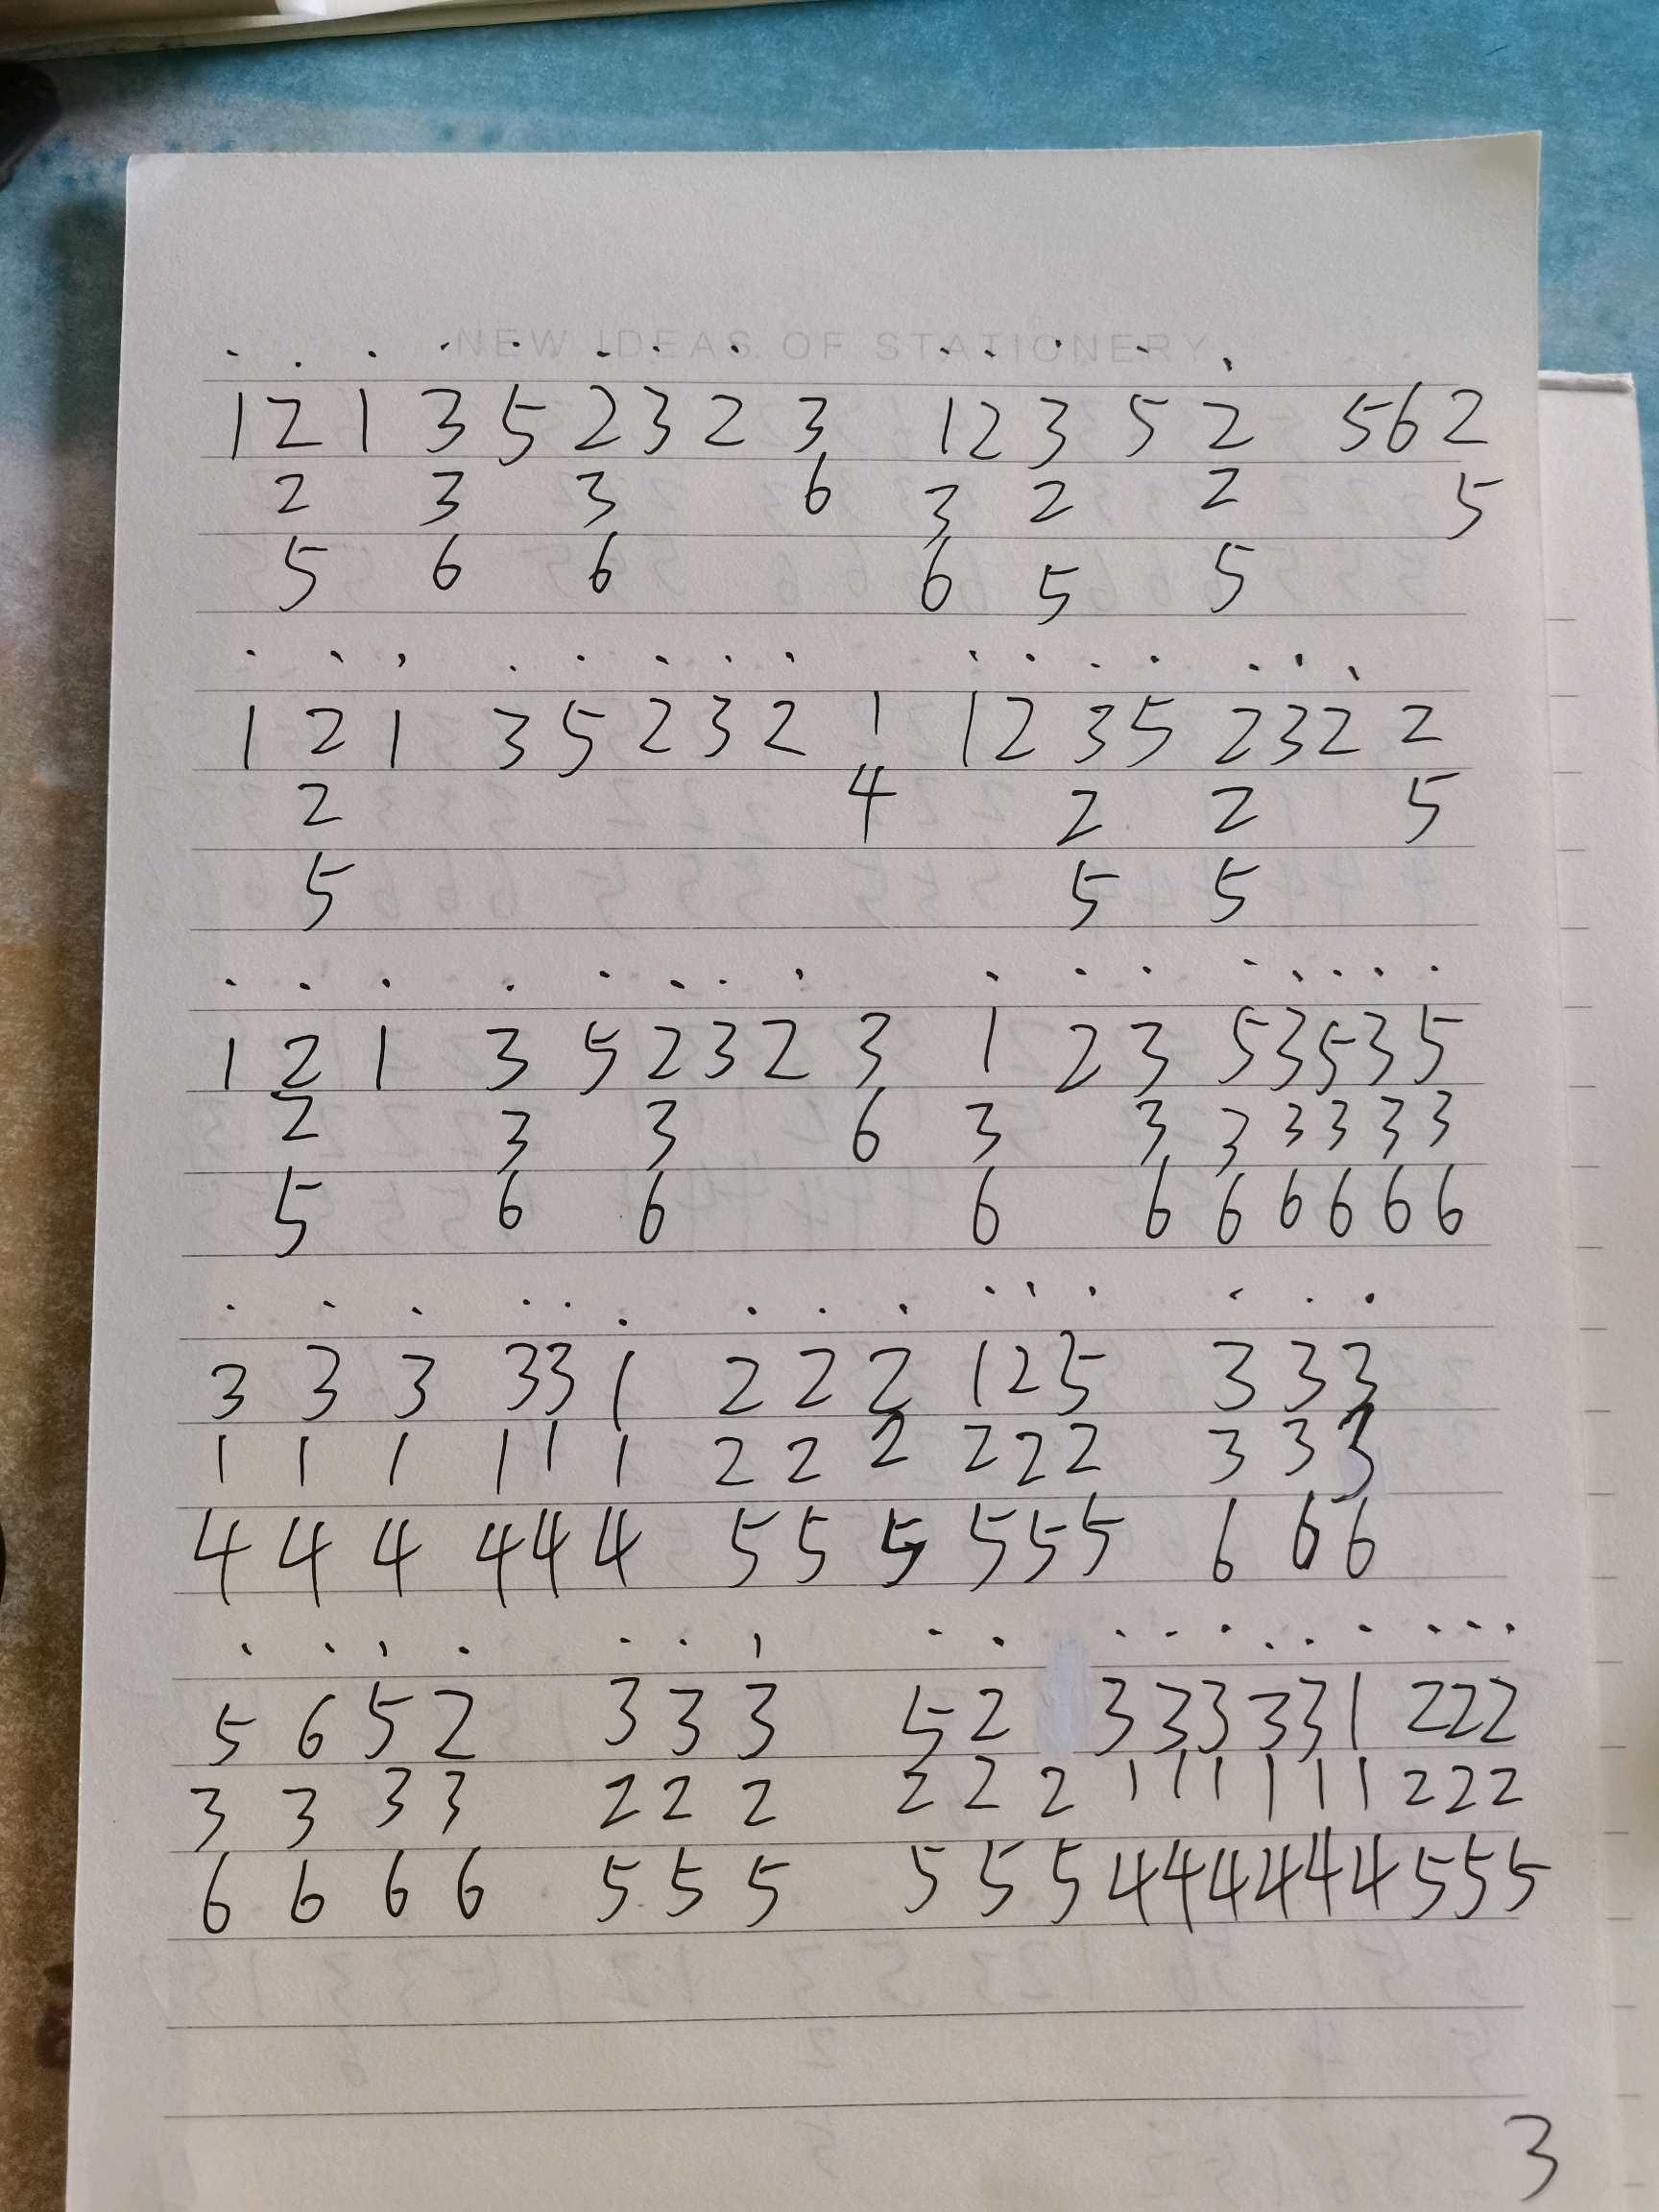 NEW IDEAS OF STATIONERY
1 2 1 3 5 2 3 2 3 1 2 3 5 2 5 6 2
2 3 3 6 3 2 2 5
5 6 6 6 5 5
1 2 1 3 5 2 3 2 1 1 2 3 5 2 3 2 2
2 4 2 2 5
5 5 5
1 2 1 3 5 2 3 2 3 1 2 3 5 3 5 3 5
2 3 3 6 3 3 3 3 3 3 3
5 6 6 6 6 6 6 6 6 6
3 3 3 3 3 1 2 2 2 1 2 5 3 3 3
1 1 1 1 1 1 2 2 2 2 2 2 3 3 3
4 4 4 4 4 4 5 5 5 5 5 5 6 6 6
5 6 5 2 3 3 3 5 2 3 3 3 3 3 1 2 2 2
3 3 3 3 2 2 2 2 2 2 1 1 1 1 1 1 2 2 2
6 6 6 6 5 5 5 5 5 5 4 4 4 4 4 4 5 5 5
3